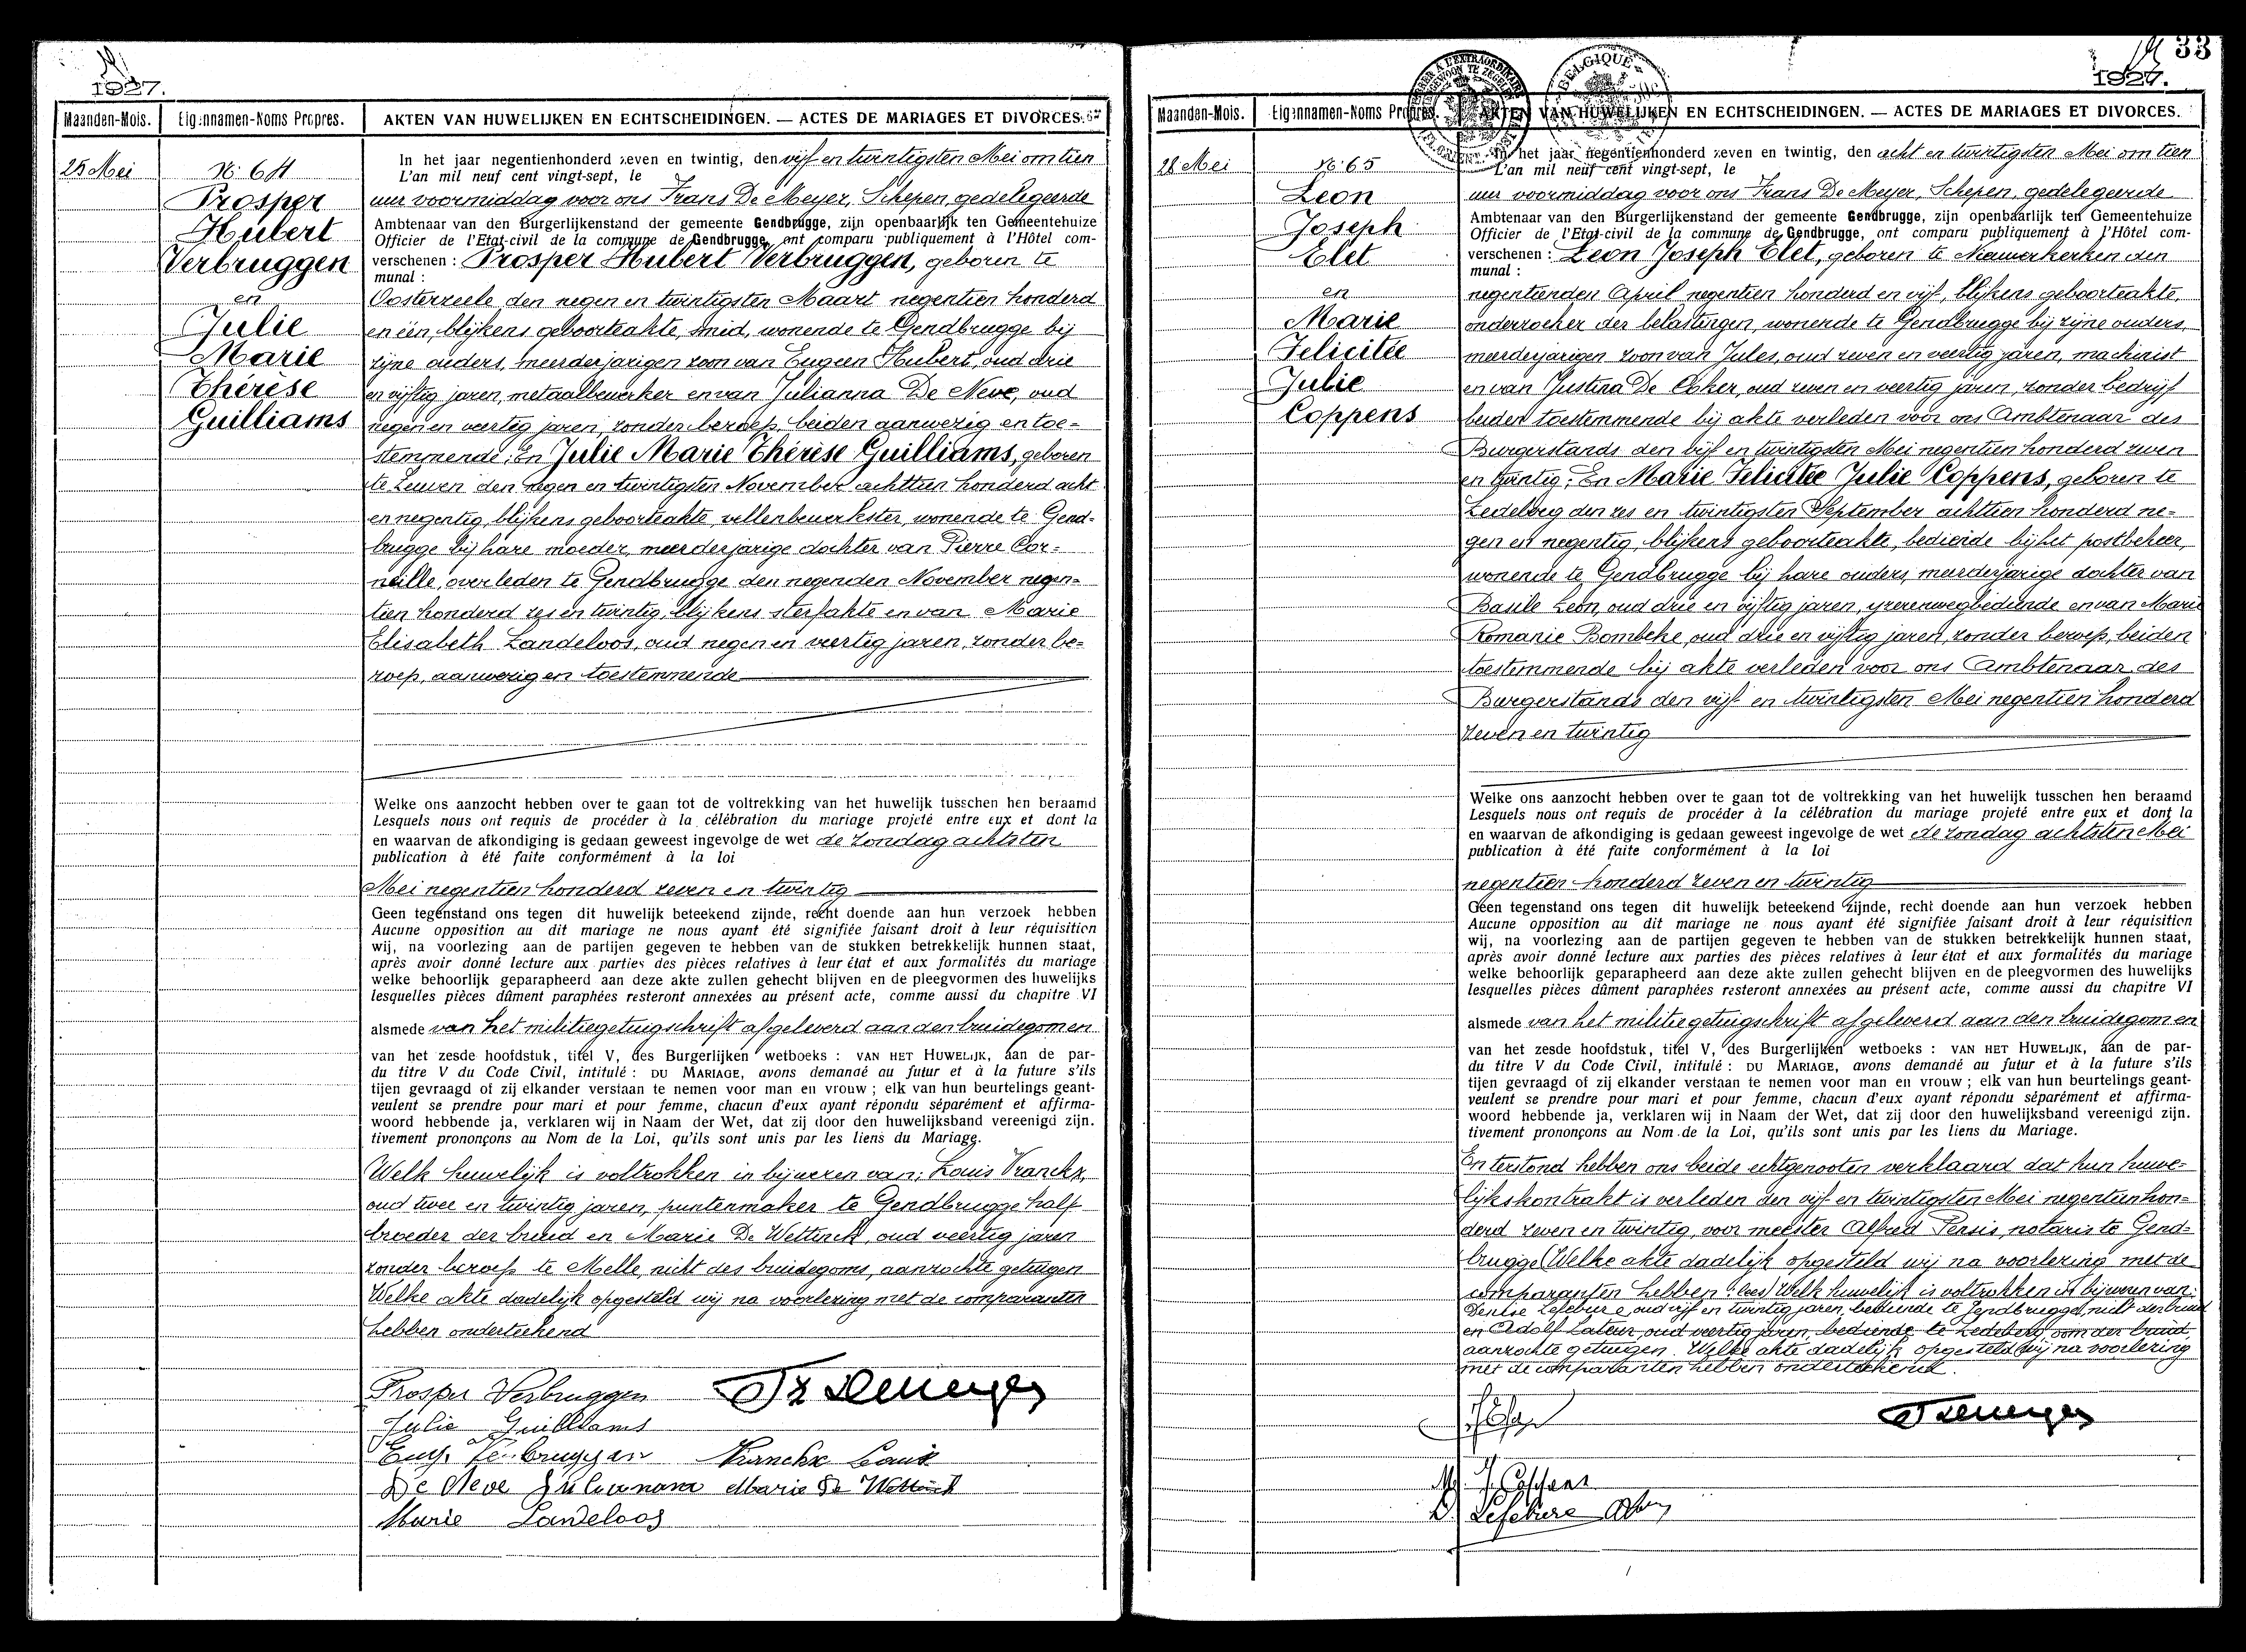 1927.
Maanden-Mois. Eigennamen-Noms Propres. AKTEN VAN HUWELIJKEN EN ECHTSCHEIDINGEN. — ACTES DE MARIAGES ET DIVORCES.
25 Mei
N: 64
Prosper
Hubert
Verbruggen
en
Julie
Marie
Thérèse
Guilliams
In het jaar negentienhonderd zeven en twintig, den vijf en twintigsten Mei om tien
L'an mil neuf cent vingt-sept, le
uur voormiddag voor ons Frans De Meyer, Schepen, gedelegeerde
Ambtenaar van den Burgerlijkenstand der gemeente Gendbrugge, zijn openbaarlijk ten Gemeentehuize
Officier de l'Etat-civil de la commune de Gendbrugge, ont comparu publiquement à l'Hôtel com-
verschenen : Prosper Hubert Verbruggen, geboren te
munal :
Oosterzeele den negen en twintigsten Maart negentien honderd
en één, blijkens geboorteakte, smid, wonende te Gendbrugge bij
zijne ouders, meerderjarigen zoon van Eugeen Hubert, oud drie
en vijftig jaren, metaalbewerker en van Julianna De Neve, oud
negen en veertig jaren, zonder beroep, beiden aanwezig en toe=
stemmende; En Julie Marie Thérèse Guilliams, geboren
te Leuven den negen en twintigsten November achttien honderd acht
en negentig, blijkens geboorteakte, vellenbewerkster, wonende te Gend=
brugge bij hare moeder, meerderjarige dochter van Pierre Cor=
neille, overleden te Gendbrugge den negenden November negen=
tien honderd zes en twintig, blijkens sterfakte en van Marie
Elisabeth Landeloos, oud negen en veertig jaren, zonder be=
roep, aanwezig en toestemmende
Welke ons aanzocht hebben over te gaan tot de voltrekking van het huwelijk tusschen hen beraamd
Lesquels nous ont requis de procéder à la célébration du mariage projeté entre eux et dont la
en waarvan de afkondiging is gedaan geweest ingevolge de wet de zondag achtsten
publication à été faite conformément à la loi
Mei negentien honderd zeven en twintig
Geen tegenstand ons tegen dit huwelijk beteekend zijnde, recht doende aan hun verzoek hebben
Aucune opposition au dit mariage ne nous ayant été signifiée faisant droit à leur réquisition
wij, na voorlezing aan de partijen gegeven te hebben van de stukken betrekkelijk hunnen staat,
après avoir donné lecture aux parties des pièces relatives à leur état et aux formalités du mariage
welke behoorlijk geparapheerd aan deze akte zullen gehecht blijven en de pleegvormen des huwelijks
lesquelles pièces dûment paraphées resteront annexées au présent acte, comme aussi du chapitre VI
alsmede van het militiegetuigschrift afgeleverd aan den bruidegom en
van het zesde hoofdstuk, titel V, des Burgerlijken wetboeks : VAN HET HUWELIJK, aan de par-
du titre V du Code Civil, intitulé : DU MARIAGE, avons demandé au futur et à la future s'ils
tijen gevraagd of zij elkander verstaan te nemen voor man en vrouw ; elk van hun beurtelings geant-
veulent se prendre pour mari et pour femme, chacun d'eux ayant répondu séparément et affirma-
woord hebbende ja, verklaren wij in Naam der Wet, dat zij door den huwelijksband vereenigd zijn.
tivement prononçons au Nom de la Loi, qu'ils sont unis par les liens du Mariage.
Welk huwelijk is voltrokken in bijwezen van: Louis Vranckx,
oud twee en twintig jaren, puntenmaker te Gendbrugge half
broeder der bruid en Marie De Wettinck, oud veertig jaren
zonder beroep te Melle, nicht des bruidegoms, aanzochte getuigen
Welke akte dadelijk opgesteld wij na voorlezing met de comparanten
hebben onderteekend
Prosper Verbruggen Fr Demeyer
Julie Guilliams
Eug. Verbruggen Vranckx Louis
De Neve Julianna Marie De Wettinck
Marie Landeloos
33
1927.
Maanden-Mois. Eigennamen-Noms Propres. AKTEN VAN HUWELIJKEN EN ECHTSCHEIDINGEN. — ACTES DE MARIAGES ET DIVORCES.
BELGIQUE
28 Mei
N: 65
Leon
Joseph
Elet
en
Marie
Felicitée
Julie
Coppens
In het jaar negentienhonderd zeven en twintig, den acht en twintigsten Mei om tien
L'an mil neuf cent vingt-sept, le
uur voormiddag voor ons Frans De Meyer, Schepen, gedelegeerde
Ambtenaar van den Burgerlijkenstand der gemeente Gendbrugge, zijn openbaarlijk ten Gemeentehuize
Officier de l'Etat-civil de la commune de Gendbrugge, ont comparu publiquement à l'Hôtel com-
verschenen : Leon Joseph Elet, geboren te Nieuwerkerken den
munal :
negentienden April negentien honderd en vijf, blijkens geboorteakte,
onderzoeker der belastingen, wonende te Gendbrugge bij zijne ouders,
meerderjarigen zoon van Jules, oud zeven en veertig jaren, machinist
en van Justina De Coker, oud zeven en veertig jaren, zonder bedrijf
beiden toestemmende bij akte verleden voor ons Ambtenaar des
Burgerstands den vijf en twintigsten Mei negentien honderd zeven
en twintig; En Marie Felicitée Julie Coppens, geboren te
Ledeberg den zes en twintigsten September achttien honderd ne=
gen en negentig, blijkens geboorteakte, bediende bij het postbeheer,
wonende te Gendbrugge bij hare ouders, meerderjarige dochter van
Basile Leon, oud drie en vijftig jaren, yzerenwegbediende en van Marie
Romanie Bombeke, oud drie en vijftig jaren, zonder beroep, beiden
toestemmende bij akte verleden voor ons Ambtenaar des
Burgerstands den vijf en twintigsten Mei negentien honderd
zeven en twintig
Welke ons aanzocht hebben over te gaan tot de voltrekking van het huwelijk tusschen hen beraamd
Lesquels nous ont requis de procéder à la célébration du mariage projeté entre eux et dont la
en waarvan de afkondiging is gedaan geweest ingevolge de wet de zondag achtsten Mei
publication à été faite conformément à la loi
negentien honderd zeven en twintig
Geen tegenstand ons tegen dit huwelijk beteekend zijnde, recht doende aan hun verzoek hebben
Aucune opposition au dit mariage ne nous ayant été signifiée faisant droit à leur réquisition
wij, na voorlezing aan de partijen gegeven te hebben van de stukken betrekkelijk hunnen staat,
après avoir donné lecture aux parties des pièces relatives à leur état et aux formalités du mariage
welke behoorlijk geparapheerd aan deze akte zullen gehecht blijven en de pleegvormen des huwelijks
lesquelles pièces dûment paraphées resteront annexées au présent acte, comme aussi du chapitre VI
alsmede van het militiegetuigschrift afgeleverd aan den bruidegom en
van het zesde hoofdstuk, titel V, des Burgerlijken wetboeks : VAN HET HUWELIJK, aan de par-
du titre V du Code Civil, intitulé : DU MARIAGE, avons demandé au futur et à la future s'ils
tijen gevraagd of zij elkander verstaan te nemen voor man en vrouw ; elk van hun beurtelings geant-
veulent se prendre pour mari et pour femme, chacun d'eux ayant répondu séparément et affirma-
woord hebbende ja, verklaren wij in Naam der Wet, dat zij door den huwelijksband vereenigd zijn.
tivement prononçons au Nom de la Loi, qu'ils sont unis par les liens du Mariage.
En terstond hebben ons beide echtgenooten verklaard dat hun huwe=
lijkskontrakt is verleden den vijf en twintigsten Mei negentien hon=
derd zeven en twintig, voor meester Alfred Persis, notaris te Gend=
brugge (Welke akte dadelijk opgesteld wij na voorlezing met de
comparanten hebben: lees) Welk huwelijk is voltrokken in bijwezen van:
Denise Lefebure, oud vijf en twintig jaren, bediende te Gendbrugge, nicht der bruid
en Adolf Lateur, oud veertig jaren, bediende te Ledeberg, oom der bruid,
aanzochte getuigen. Welke akte dadelijk opgesteld wij na voorlezing
met de comparanten hebben onderteekend.
Fr Demeyer
M. J. Coppens
D. Lefebure